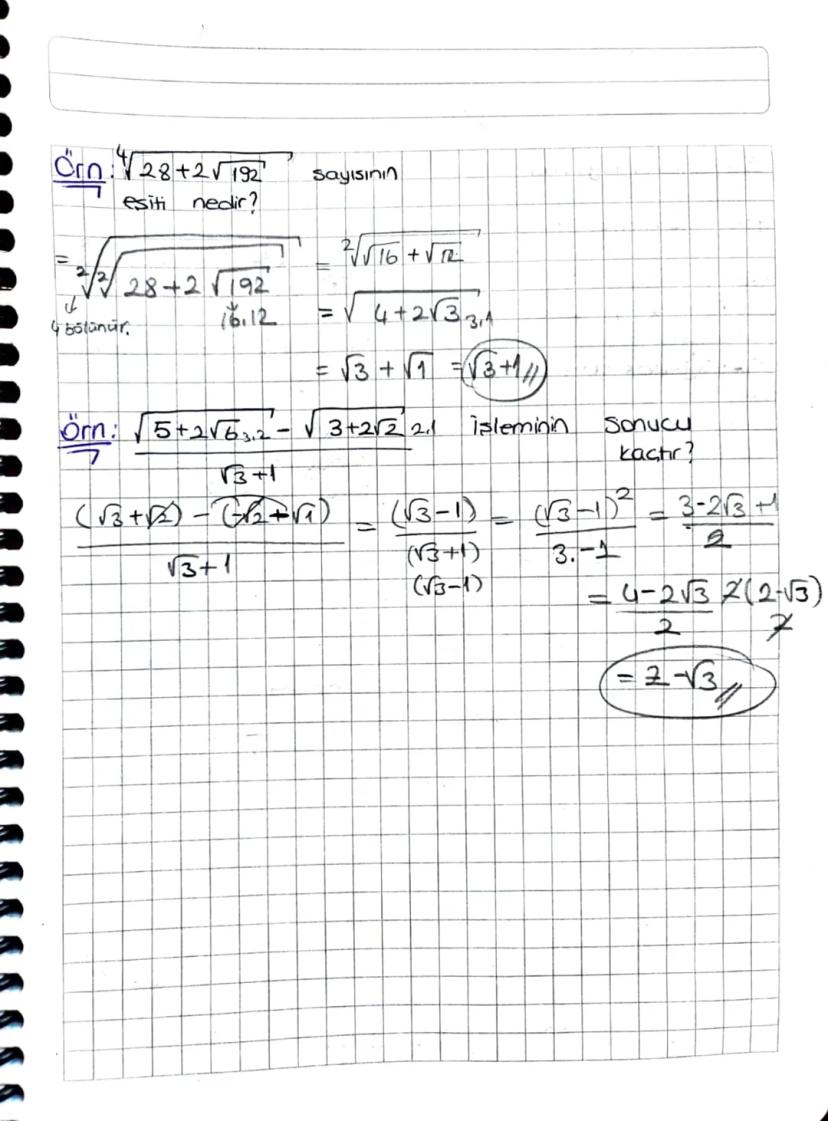 Örn: ⁴√(28+2√192) sayısının
eşiti nedir?
= ²√(²√(28+2√192)) = ²√(√16 + √12)
4 bölünür. 16.12 = √(4+2√3) 3.1
= √3 + √1 = √3+1//
Örn: (√(5+2√6) 3.2 - √(3+2√2) 2.1)/(√3+1) işleminin sonucu
kaçtır?
((√3+√2) - (√2+√1))/(√3+1) = (√3-1)/((√3+1)(√3-1)) = (√3-1)²/(3.-1) = (3-2√3+1)/2
= (4-2√3)/2 2(2-√3)/2
= 2-√3//